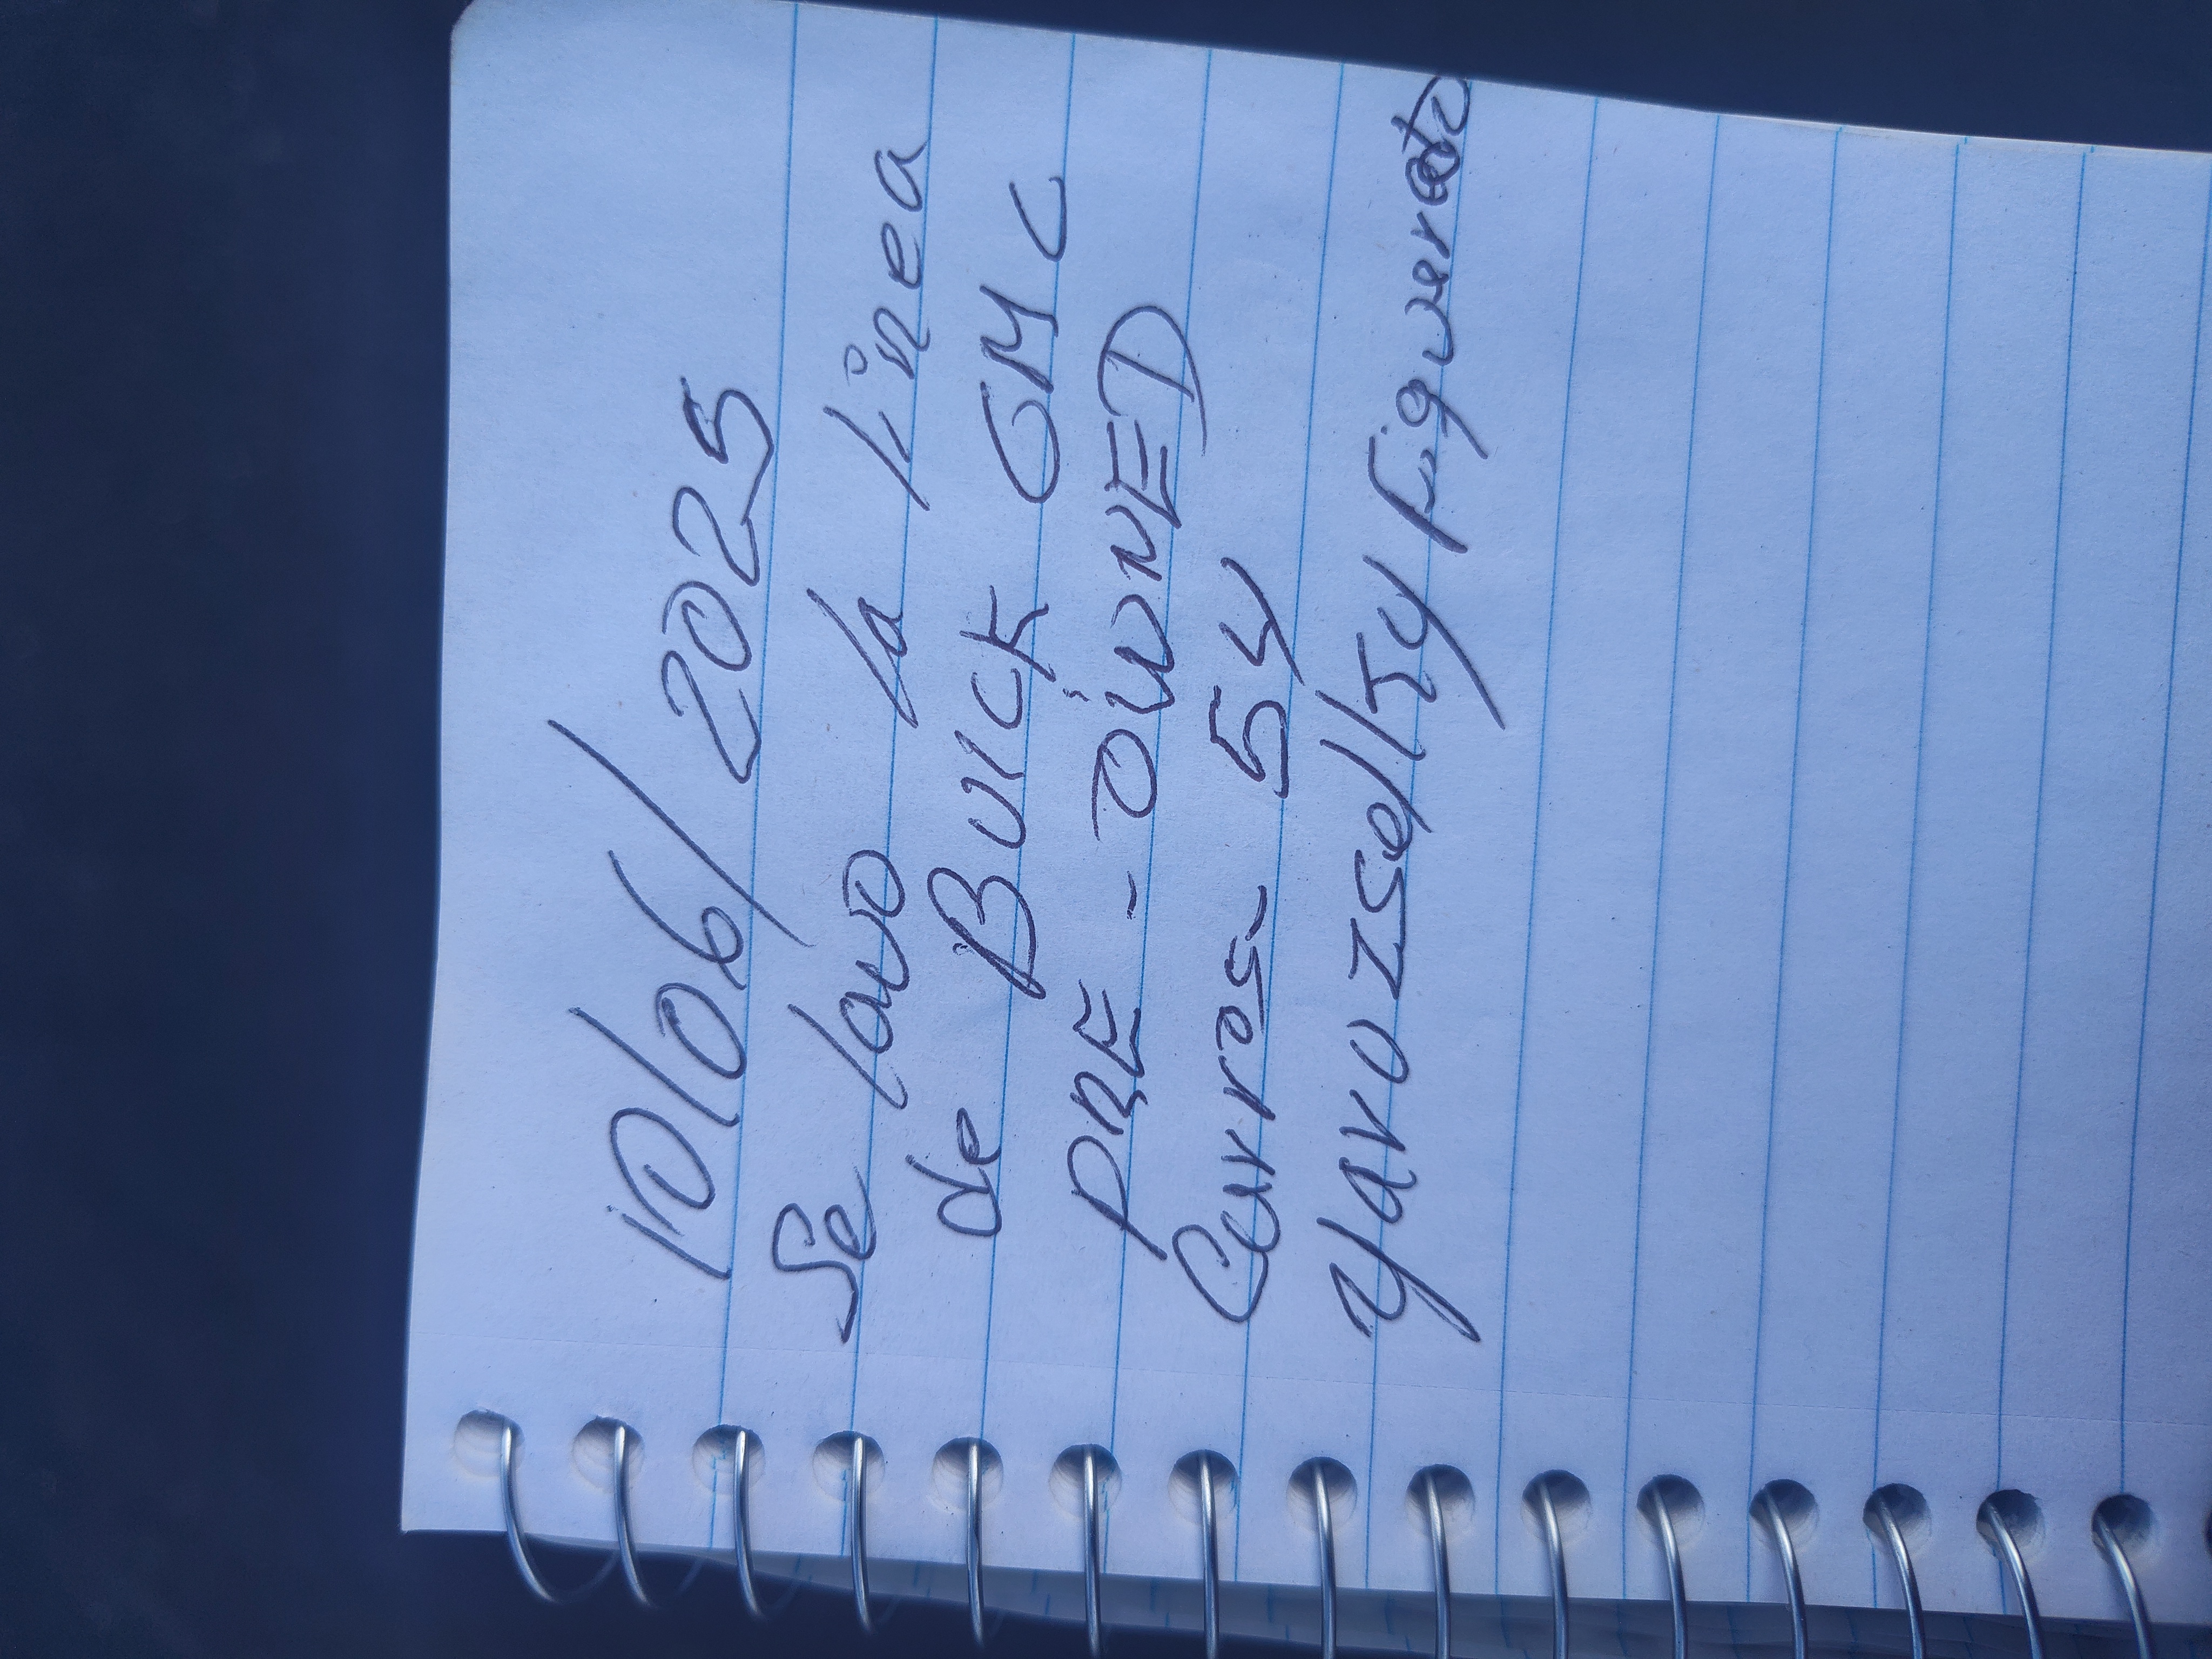 10/06/2025
Se lavo la linea
de BUICK GMC
PRE-OWNED
Carros- 54
Yaruzselky figuereo